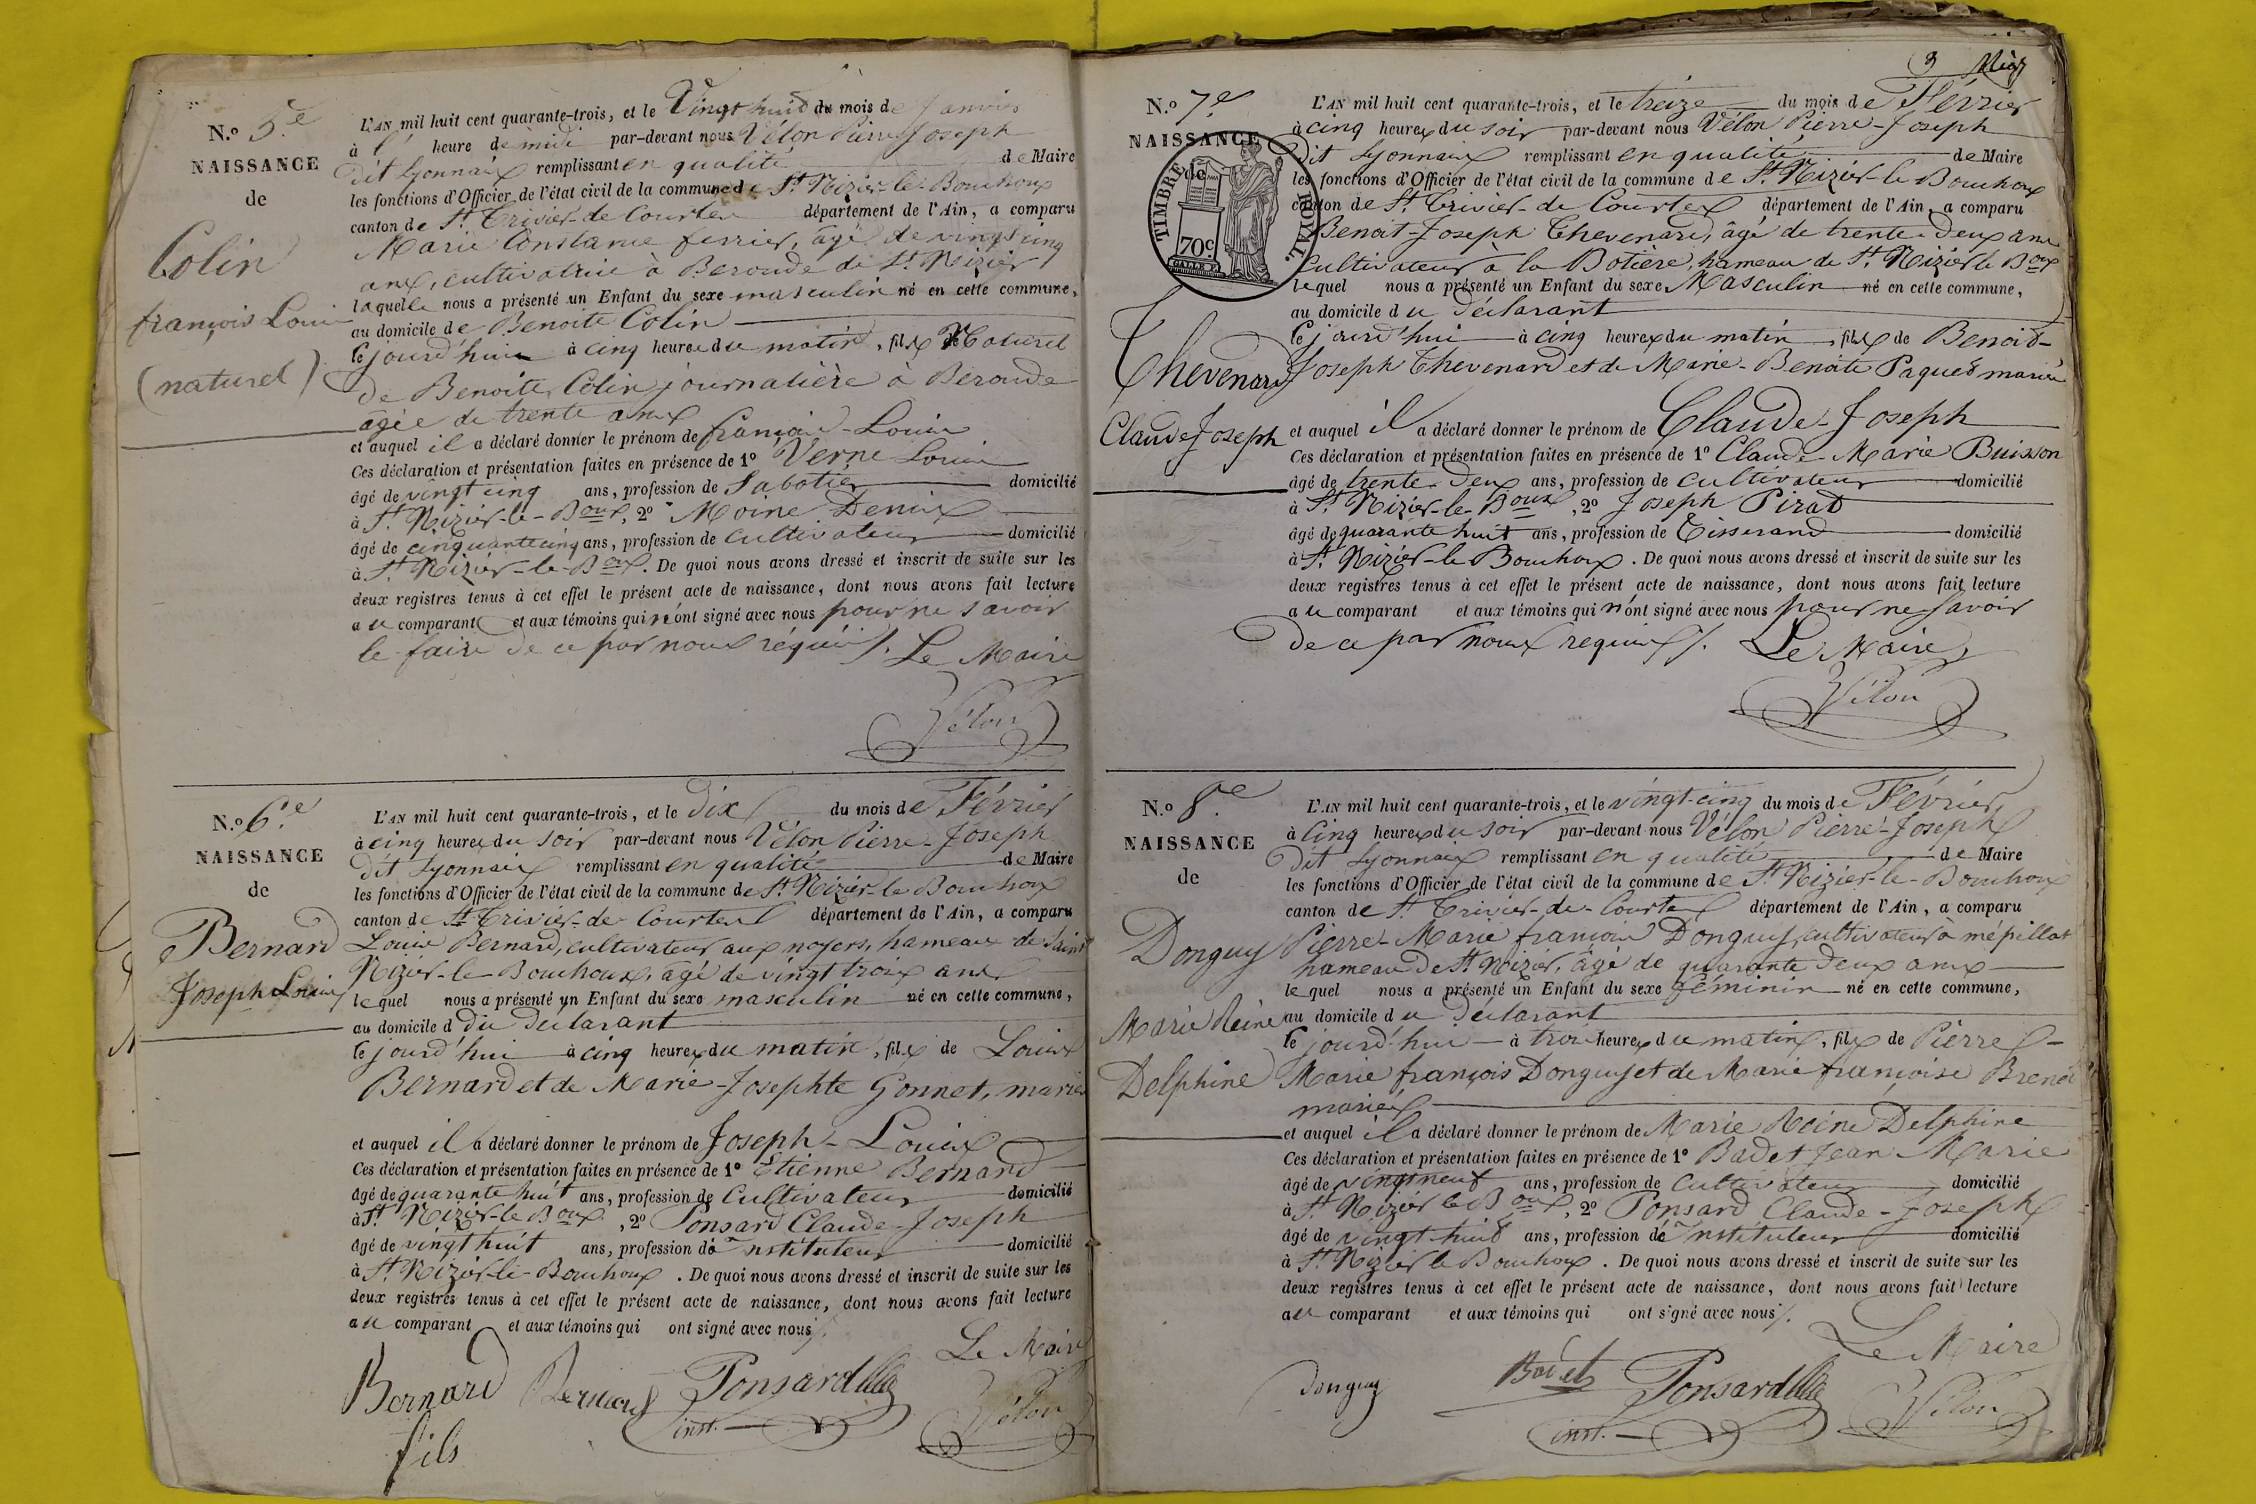 N.º 5.e
NAISSANCE
de
Colin
françois Louis
(naturel)
L'AN mil huit cent quarante-trois, et le Vingt huit du mois de Janvier
à l' heure de midi par-devant nous Vélon Pierre Joseph
dit Lyonnais remplissant en qualité de Maire
les fonctions d'Officier de l'état civil de la commune de St. Nizier-le-Bouchoux
canton de St. Trivier-de-Courtes département de l'Ain, a comparu
Marie Constance ferrier, âgé de vingt cinq
ans, cultivatrice à Beroude de St. Nizier
laquelle nous a présenté un Enfant du sexe masculin né en cette commune,
au domicile de Benoite Colin
le jourd'hui à cinq heures du matin, fils Naturel
de Benoite Colin journalière à Beroude
âgée de trente ans
et auquel il a déclaré donner le prénom de françois-Louis
Ces déclaration et présentation faites en présence de 1º Verne Louis
âgé de vingt cinq ans, profession de Sabotier domicilié
à St. Nizier-le-Boux, 2º Moine Denis
âgé de cinquante cinq ans, profession de cultivateur domicilié
à St. Nizier-le-Boux. De quoi nous avons dressé et inscrit de suite sur les
deux registres tenus à cet effet le présent acte de naissance, dont nous avons fait lecture
au comparant et aux témoins qui n'ont signé avec nous pour ne savoir
le faire de ce par nous réquis/. Le Maire
Vélon
N.º 6.e
NAISSANCE
de
Bernard
Joseph Louis
L'AN mil huit cent quarante-trois, et le dix du mois de Février
à cinq heures du soir par-devant nous Vélon Pierre-Joseph
dit Lyonnais remplissant en qualité de Maire
les fonctions d'Officier de l'état civil de la commune de St. Nizier-le-Bouchoux
canton de St. Trivier-de-Courtes département de l'Ain, a comparu
Louis Bernard, cultivateur aux noyers, hameaux de Saint
Nizier-le-Bouchoux, âgé de vingt trois ans
lequel nous a présenté un Enfant du sexe masculin né en cette commune,
au domicile d du déclarant
le jourd'hui à cinq heures du matin, fils de Louis
Bernard et de Marie-Josephte Gonnet, mariés
et auquel il a déclaré donner le prénom de Joseph-Louis
Ces déclaration et présentation faites en présence de 1º Étienne Bernard
âgé de quarante huit ans, profession de Cultivateur domicilié
à St. Nizier-le-Boux, 2º Ponsard Claude-Joseph
âgé de vingt huit ans, profession d'instituteur domicilié
à St. Nizier-le-Bouchoux. De quoi nous avons dressé et inscrit de suite sur les
deux registres tenus à cet effet le présent acte de naissance, dont nous avons fait lecture
au comparant et aux témoins qui ont signé avec nous/.
Le Maire
Bernard Bernard Ponsard
fils inst. Vélon
3
N.º 7.e
NAISSANCE
de
TIMBRE ROYAL.
70c.
Thevenard
Claude Joseph
L'AN mil huit cent quarante-trois, et le treize du mois de Février
à cinq heures du soir par-devant nous Vélon Pierre-Joseph
dit Lyonnais remplissant en qualité de Maire
les fonctions d'Officier de l'état civil de la commune de St. Nizier-le Bouchoux
canton de St. Trivier-de Courtes département de l'Ain, a comparu
Benoit-Joseph Thevenard, âgé de trente-deux ans
Cultivateur à la Botière, hameau de St. Nizier le Boux
lequel nous a présenté un Enfant du sexe Masculin né en cette commune,
au domicile du déclarant
le jourd'hui à cinq heures du matin, fils de Benoit-
Joseph Thevenard et de Marie-Benoite Paquet mariés
et auquel il a déclaré donner le prénom de Claude-Joseph
Ces déclaration et présentation faites en présence de 1º Claude-Marie Buisson
âgé de trente-deux ans, profession de cultivateur domicilié
à St. Nizier-le-Boux, 2º Joseph Pirat
âgé de quarante huit ans, profession de Tisserand domicilié
à St. Nizier-le Bouchoux. De quoi nous avons dressé et inscrit de suite sur les
deux registres tenus à cet effet le présent acte de naissance, dont nous avons fait lecture
au comparant et aux témoins qui n'ont signé avec nous pour ne savoir
de ce par nous requis/. Le Maire,
Vélon
N.º 8.e
NAISSANCE
de
Donguy
Marie Reine
Delphine
L'AN mil huit cent quarante-trois, et le vingt-cinq du mois de Février
à cinq heures du soir par-devant nous Vélon Pierre-Joseph
dit Lyonnais remplissant en qualité de Maire
les fonctions d'Officier de l'état civil de la commune de St. Nizier-le-Bouchoux
canton de St. Trivier-de-Courtes département de l'Ain, a comparu
Pierre-Marie françois Donguy, cultivateur à mépillat
hameau de St. Nizier, âgé de quarante deux ans
lequel nous a présenté un Enfant du sexe féminin né en cette commune,
au domicile du déclarant
le jourd'hui à trois heures du matin, fils de Pierre-
Marie françois Donguy et de Marie françoise Brenot
mariés
et auquel il a déclaré donner le prénom de Marie Reine Delphine
Ces déclaration et présentation faites en présence de 1º Badet Jean Marie
âgé de vingt neuf ans, profession de Cultivateur domicilié
à St. Nizier le Boux, 2º Ponsard Claude-Joseph
âgé de vingt-huit ans, profession d'instituteur domicilié
à St. Nizier le Bouchoux. De quoi nous avons dressé et inscrit de suite sur les
deux registres tenus à cet effet le présent acte de naissance, dont nous avons fait lecture
au comparant et aux témoins qui ont signé avec nous/.
Le Maire
donguy Badet Ponsard
inst. Vélon